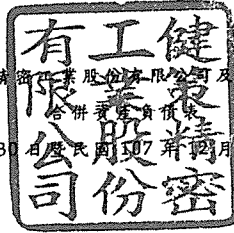 健策精密
工業股份
有限公司
密工業股份有限公司及
合併資產負債表
30日暨民國107年12月